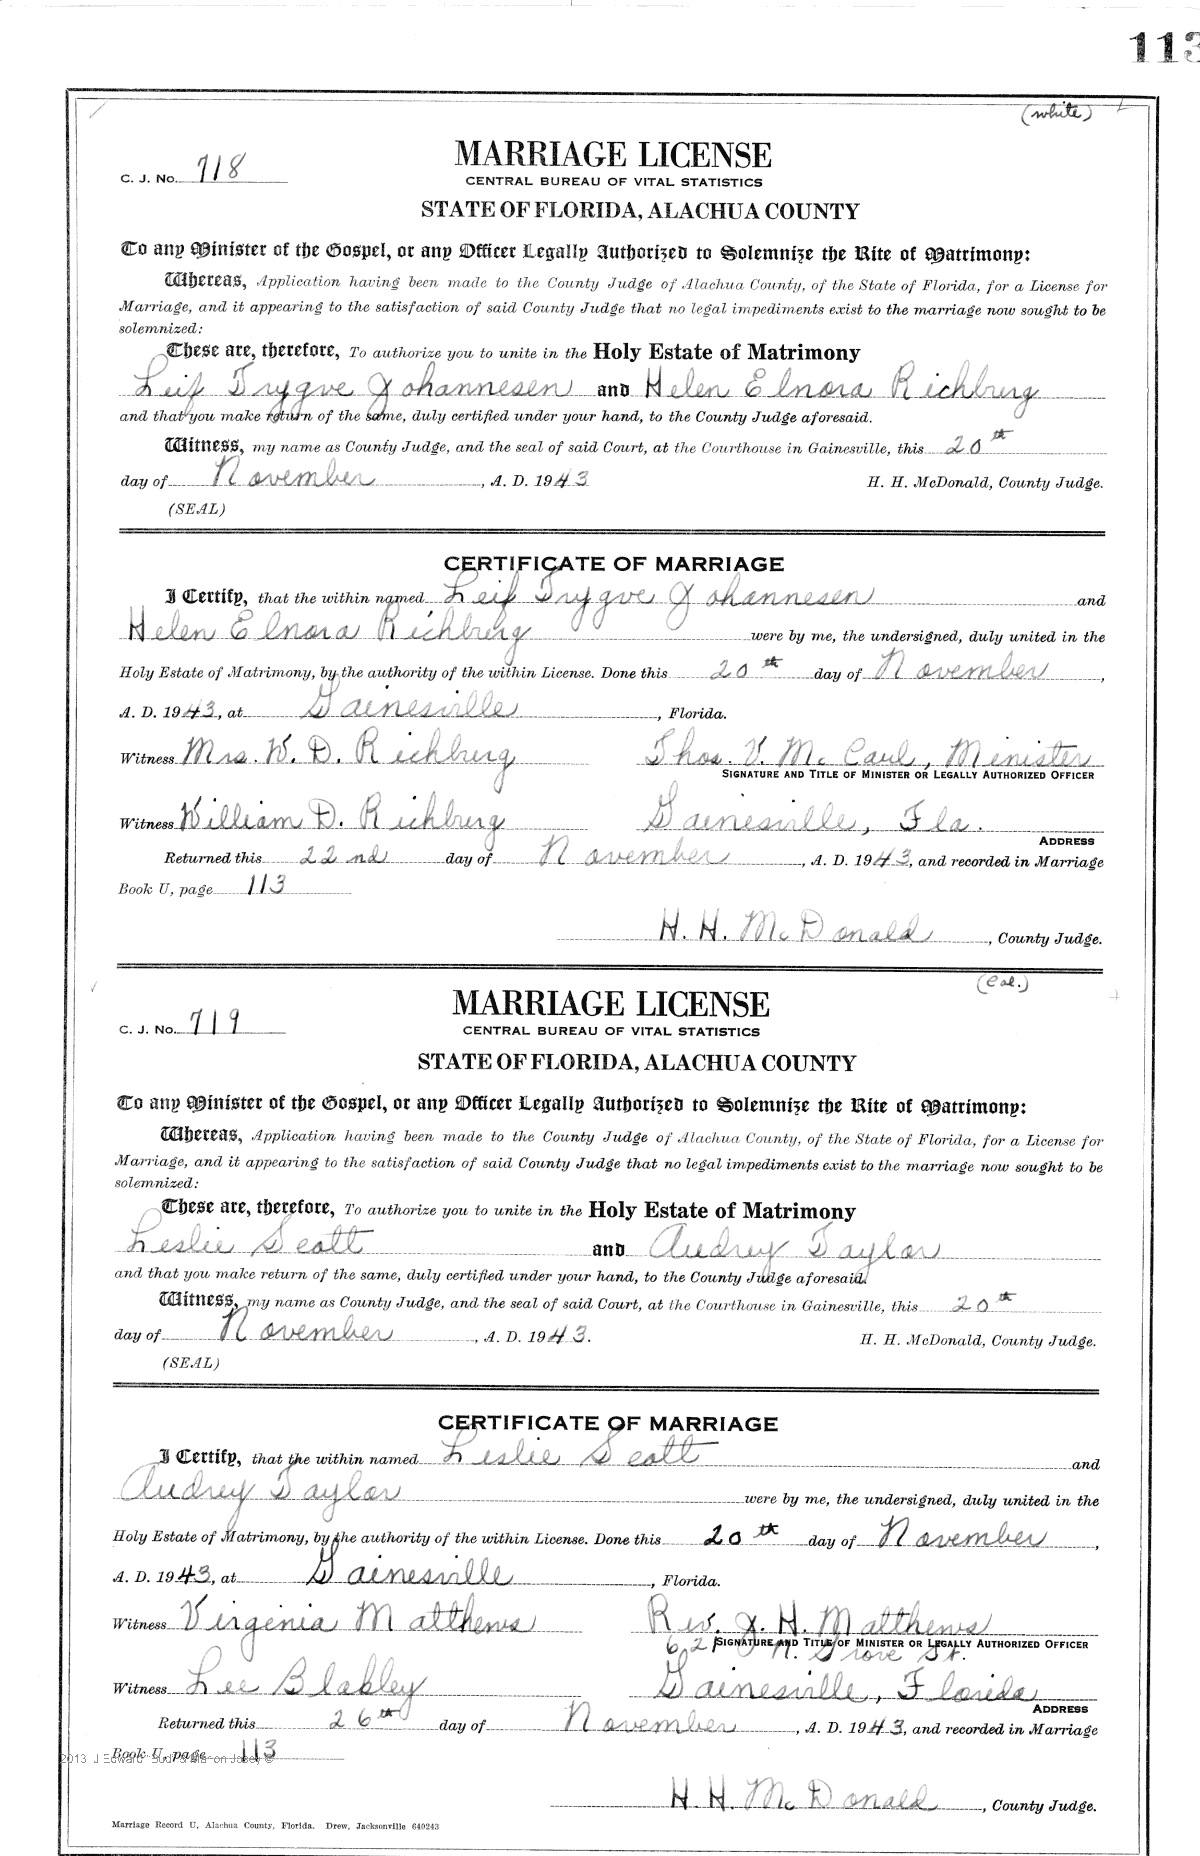 113
(white)
MARRIAGE LICENSE
C. J. No. 718
CENTRAL BUREAU OF VITAL STATISTICS
STATE OF FLORIDA, ALACHUA COUNTY
To any Minister of the Gospel, or any Officer Legally Authorized to Solemnize the Rite of Matrimony:
Whereas, Application having been made to the County Judge of Alachua County, of the State of Florida, for a License for
Marriage, and it appearing to the satisfaction of said County Judge that no legal impediments exist to the marriage now sought to be
solemnized:
These are, therefore, To authorize you to unite in the Holy Estate of Matrimony
Leif Trygve Johannesen and Helen Elnora Richberg
and that you make return of the same, duly certified under your hand, to the County Judge aforesaid.
Witness, my name as County Judge, and the seal of said Court, at the Courthouse in Gainesville, this 20th
day of November, A. D. 1943 H. H. McDonald, County Judge.
(SEAL)
CERTIFICATE OF MARRIAGE
I Certify, that the within named Leif Trygve Johannesen and
Helen Elnora Richberg were by me, the undersigned, duly united in the
Holy Estate of Matrimony, by the authority of the within License. Done this 20th day of November,
A. D. 1943, at Gainesville, Florida.
Witness Mrs. W. D. Richberg Thos. V. McCaul, Minister
SIGNATURE AND TITLE OF MINISTER OR LEGALLY AUTHORIZED OFFICER
Witness William D. Richberg Gainesville, Fla.
ADDRESS
Returned this 22nd day of November, A. D. 1943, and recorded in Marriage
Book U, page 113
H. H. McDonald, County Judge.
(Col.)
MARRIAGE LICENSE
C. J. No. 719
CENTRAL BUREAU OF VITAL STATISTICS
STATE OF FLORIDA, ALACHUA COUNTY
To any Minister of the Gospel, or any Officer Legally Authorized to Solemnize the Rite of Matrimony:
Whereas, Application having been made to the County Judge of Alachua County, of the State of Florida, for a License for
Marriage, and it appearing to the satisfaction of said County Judge that no legal impediments exist to the marriage now sought to be
solemnized:
These are, therefore, To authorize you to unite in the Holy Estate of Matrimony
Leslie Scott and Audrey Taylor
and that you make return of the same, duly certified under your hand, to the County Judge aforesaid.
Witness, my name as County Judge, and the seal of said Court, at the Courthouse in Gainesville, this 20th
day of November, A. D. 1943. H. H. McDonald, County Judge.
(SEAL)
CERTIFICATE OF MARRIAGE
I Certify, that the within named Leslie Scott and
Audrey Taylor were by me, the undersigned, duly united in the
Holy Estate of Matrimony, by the authority of the within License. Done this 20th day of November,
A. D. 1943, at Gainesville, Florida.
Witness Virginia Matthews Rev. J. H. Matthews
SIGNATURE AND TITLE OF MINISTER OR LEGALLY AUTHORIZED OFFICER
621 N. Grove St.
Witness Lee Blakley Gainesville, Florida
ADDRESS
Returned this 26th day of November, A. D. 1943, and recorded in Marriage
Book U, page 113
2013 J Edward
H. H. McDonald, County Judge.
Marriage Record U, Alachua County, Florida. Drew, Jacksonville 640243